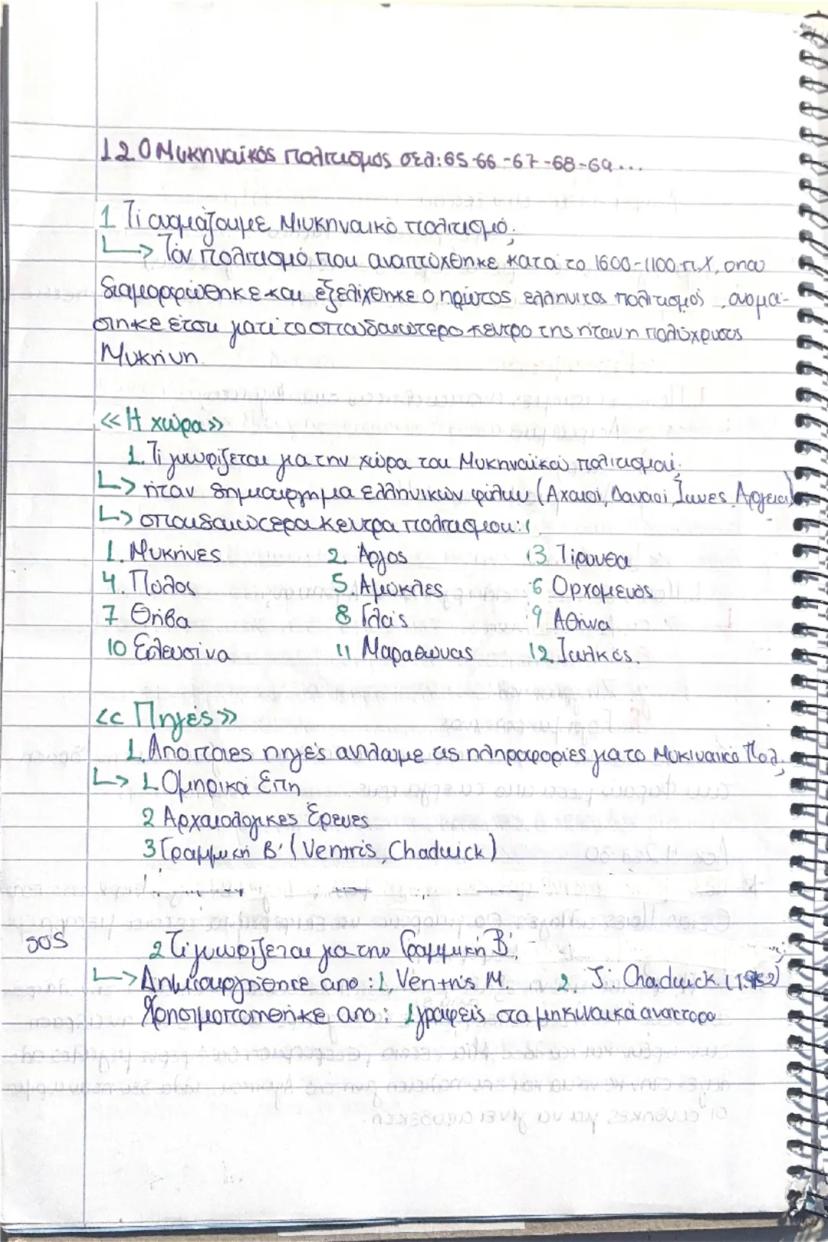 1.2 Ο Μυκηναϊκός πολιτισμός σελ: 65-66-67-68-69...
1 Τι ονομάζουμε Μυκηναικό πολιτισμό;
↳ Τον πολιτισμό που αναπτύχθηκε κατα το 1600-1100 π.Χ, οπου
διαμορφώθηκε και εξελίχθηκε ο πρώτος ελληνικος πολιτισμός. ονομα-
στηκε έτσι γιατί το σπουδαιοτερο κεντρο της ήταν η πολύχρυσος
Μυκήνη.
«Η χώρα»
1. Τι γνωρίζεται για την χώρα του Μυκηναϊκού πολιτισμού;
↳ ήταν δημιουργημα ελληνικών φύλων (Αχαιοί, Δαναοί, Ίωνες, Αργειοι)
↳ σπουδαιώτερα κεντρα πολιτισμου:
1. Μυκήνες 2. Αργος 3 Τίρυνθα
4. Πύλος 5. Αμύκλες 6 Ορχομενός
7 Θήβα 8 Γλάς 9 Αθήνα
10 Ελευσίνα 11 Μαραθώνας 12 Ιωλκός.
«Πηγές»
1. Απο ποιες πηγές αντλουμε τις πληροφορίες για το Μυκιναικό Πολ;
↳ 1. Ομηρικά Επη
2 Αρχαιολογικες Ερευνες
3 Γραμμική Β' (Ventris, Chadwick)
SOS 2 Τι γνωρίζεται για την Γραμμική Β';
↳ Δημιουργήθηκε απο: 1. Ventris M. 2. J. Chadwick (1952)
Χρησιμοποιήθηκε απο: 1 γραφείς στα μηκιναικά ανακτορα